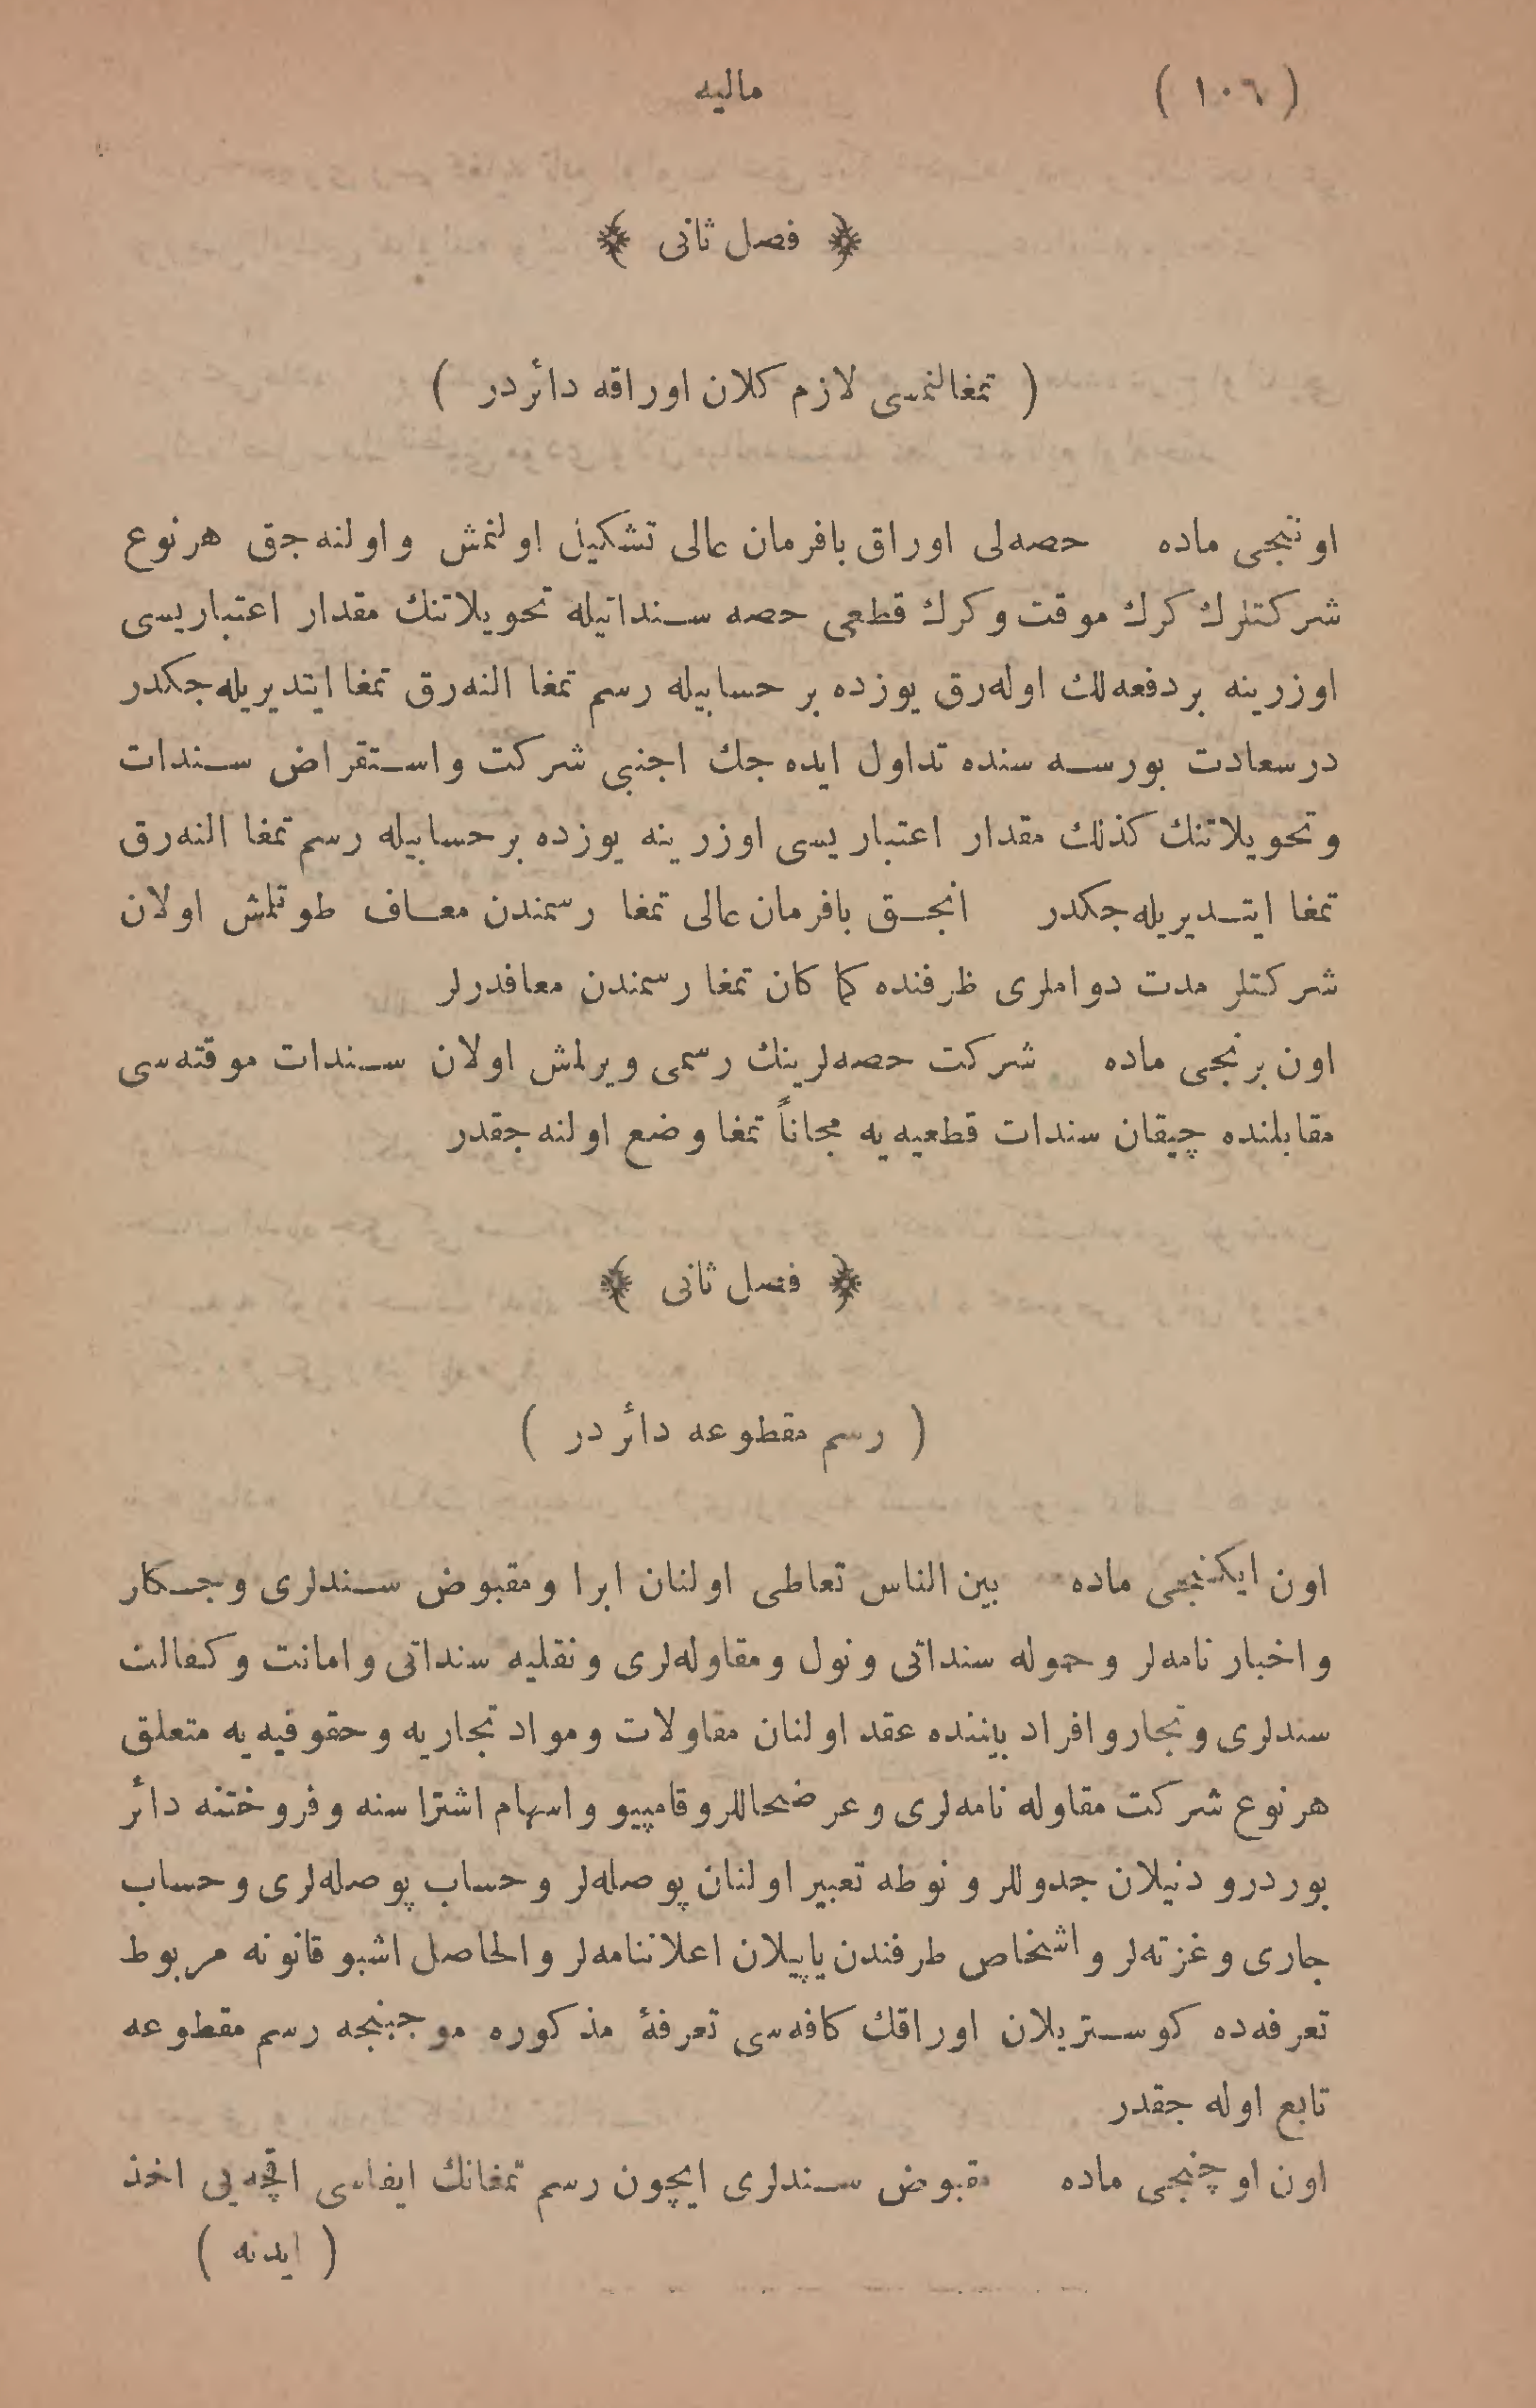 ( ١٠٦ ) ماليه
﴿ فصل ثانى ﴾
( تمغالنمسى لازم كلان اوراقه دائردر )
اوننجى ماده حصه‌لى اوراق بافرمان عالى تشكيل اولنمش واولنه‌جق هرنوع
شركتلرك كرك موقت وكرك قطعى حصه سنداتيله تحويلاتنك مقدار اعتباريسى
اوزرينه بردفعه‌لك اوله‌رق يوزده بر حسابيله رسم تمغا النه‌رق تمغا ايتديريله‌جكدر
درسعادت بورسه سنده تداول ايده جك اجنبى شركت واستقراض سندات
وتحويلاتنك كذلك مقدار اعتباريسى اوزرينه يوزده برحسابيله رسم تمغا النه‌رق
تمغا ايتديريله‌جكدر انجق بافرمان عالى تمغا رسمندن معاف طوتلمش اولان
شركتلر مدت دواملرى ظرفنده كما كان تمغا رسمندن معافدرلر
اون برنجى ماده شركت حصه‌لرينك رسمى ويرلمش اولان سندات موقته‌سى
مقابلنده چيقان سندات قطعيه يه مجاناً تمغا وضع اولنه جقدر
﴿ فصل ثانى ﴾
( رسم مقطوعه دائردر )
اون ايكنجى ماده بين الناس تعاطى اولنان ابرا ومقبوض سندلرى وجكار
واخبار نامه‌لر وحموله سنداتى ونول ومقاوله‌لرى ونقليه سنداتى وامانت وكفالت
سندلرى وتجار وافراد بيننده عقد اولنان مقاولات ومواد تجاريه وحقوقيه يه متعلق
هرنوع شركت مقاوله نامه‌لرى وعرضحاللر وقامپيو واسهام اشتراسنه وفروختنه دائر
بوردرو دنيلان جدوللر ونوطه تعبير اولنان پوصله‌لر وحساب پوصله‌لرى وحساب
جارى وغزته‌لر واشخاص طرفندن ياپيلان اعلاننامه‌لر والحاصل اشبو قانونه مربوط
تعرفه‌ده كوستريلان اوراقك كافه‌سى تعرفهٔ مذكوره موجبنجه رسم مقطوعه
تابع اوله جقدر
اون اوچنجى ماده مقبوض سندلرى ايچون رسم تمغانك ايفاسى اقچه‌يى اخذ
( ايدنه )